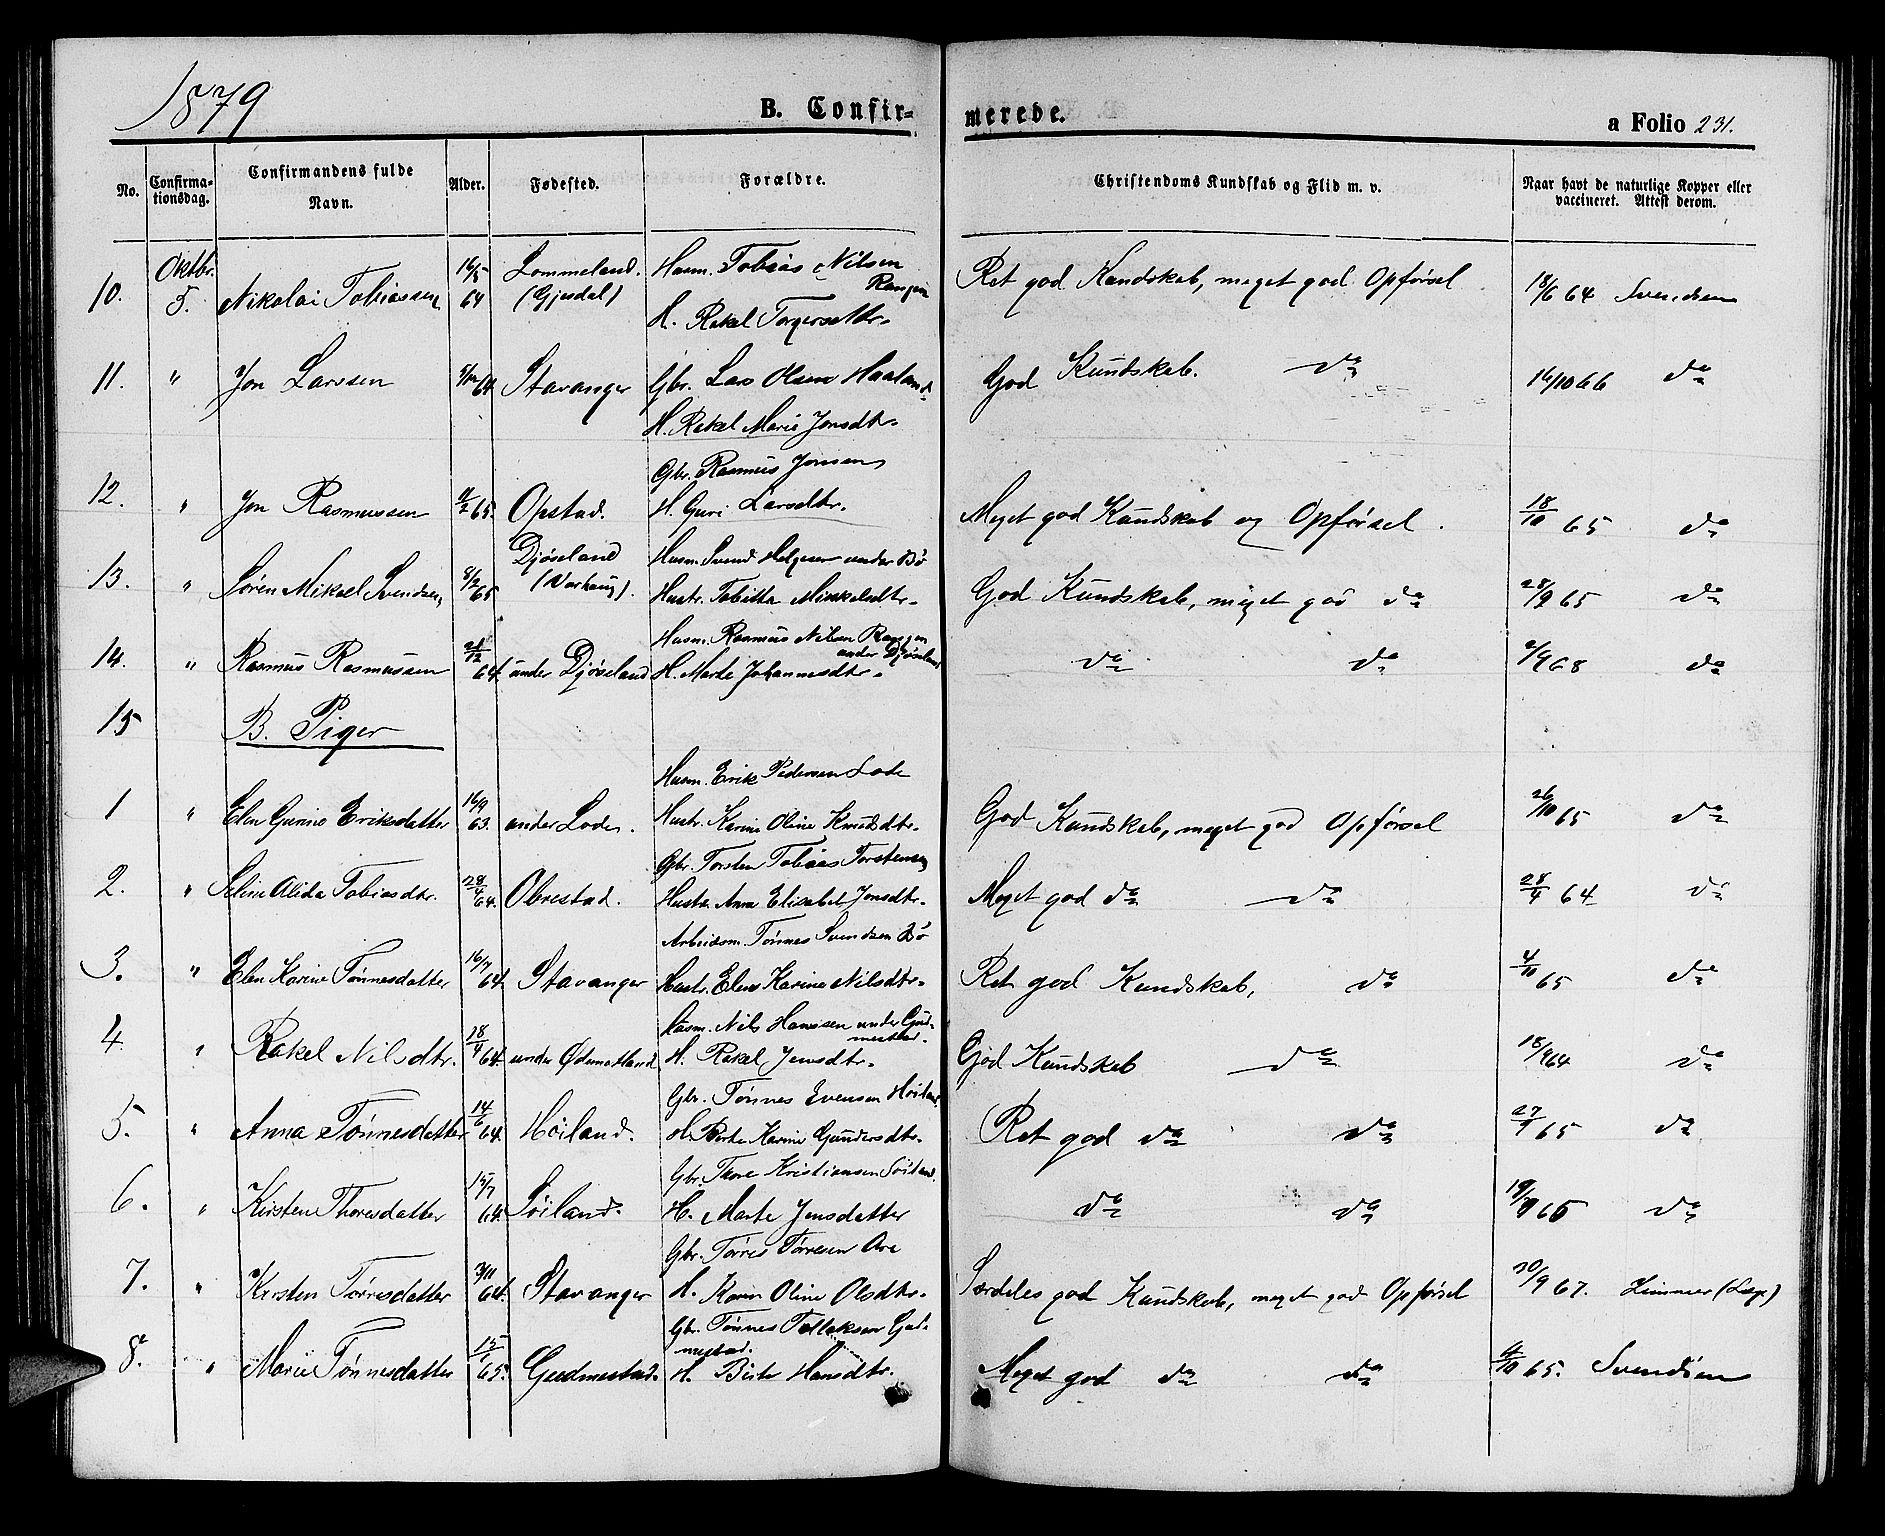 1879
B. Confir-
merede.
a Folio 231.
No. Confirma-tionsdag. Confirmandens fulde Navn. Alder. Fødested. Forældre. Christendoms Kundskab og Flid m. v. Naar havt de naturlige Kopper eller vaccineret. Attest derom.
Oktbr. 16/5 Lommeland. Husm. Tobias Nilsen
10. 5. Nikolai Tobiassen 64 (Gjesdal) Ret god Kundskab, meget god Opførsel 18/6 64 Svendsen
H. Rakel Torgersdtr.
11. " Jon Larssen 64 Stavanger Gbr. Lars Olsen Haaland God Kundskab. do 16/10 66 do
H. Rakel Marie Jonsdtr.
Gbr. Rasmus Jonsen
12. " Jon Rasmussen 65. Opstad. H. Guri Larsdtr. Meget god Kundskab og Opførsel. 18/10 65 do
Djøseland Husm. Svend Helgesen under Bø
13. " Søren Mikael Svendsen 8/2 65 (Varhaug). Hustr. Tobitta Mikkelsdtr. God Kundskab, meget god do 28/9 65 do
Husm. Rasmus Nilsen
under Djøseland
14. " Rasmus Rasmussen 21/12 64. under Djøseland H. Marte Johannesdtr. do do 68 do
15 B. Piger
Husm. Erik Pedersen Lode
1 " Elen Gurine Eriksdatter 16/9 63. under Lode. Hustr. Karine Oline Knudsdtr. God Kundskab, meget god Opførsel 26/10 65 do
Gbr. Torsten Tobias Torstensen
2. " Seline Alida Tobiasdtr. 28/4 64. Obrestad. Hustr. Anna Elisabet Jonsdtr. Meget god do do 28/4 64 do
Arbeidsm. Tønnes Svendsen Bø
3. " Elen Karine Tønnesdatter 16/7 64. Stavanger Hustr. Elen Karine Nilsdtr. Ret god Kundskab, do 4/10 65 do
Husm. Nils Hansen under Gud-
mestad.
4. " Rakel Nilsdtr. 64. under Ødemotland H. Rakel Jensdtr. God Kundskab do 64 do
Gbr. Tønnes Evensen Høiland
5. " Anna Tønnesdatter 14/6 64. Høiland. H. Berte Karine Gundersdtr. Ret god do do 65 do
Gbr. Thore Kristiansen Søiland.
6. " Kirsten Thoresdatter 15/7 64. Søiland. H. Marte Jensdatter do do 19/9 65 do
Gbr. Tørres Tørresen Are
7. " Kirsten Tørresdatter 3/11 64. Stavanger H. Karen Oline Olsdtr. Særdeles god Kundskab, meget god Opførsel 67. Zimmer (Læge)
Gbr. Tønnes Tollaksen Gud-
mestad.
8. " Marie Tønnesdatter 65. Gudmestad. H. Birte Hansdtr. Meget god do do 4/10 65. Svendsen